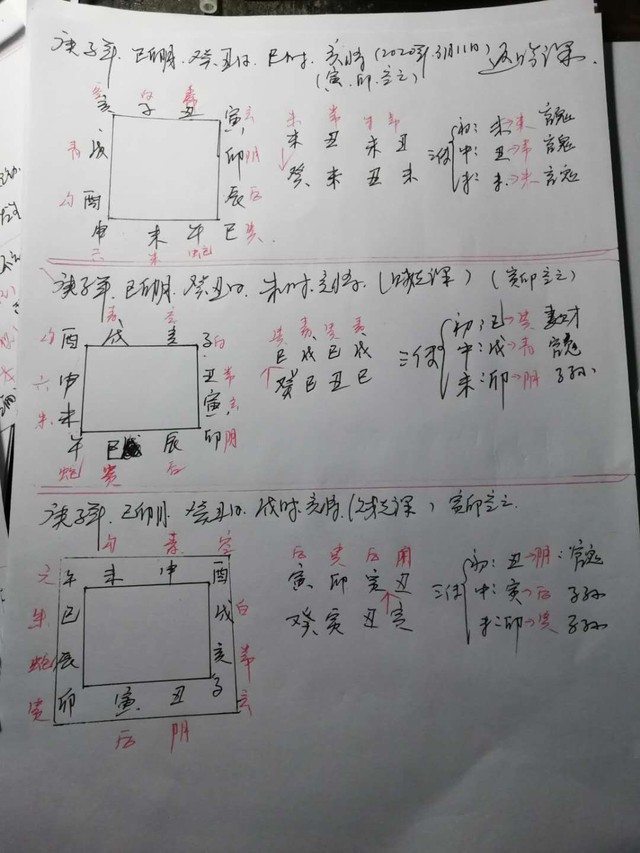 庚子年.己卯月.癸丑日.巳时.亥将(2020年.3月11日)返吟课.
(寅.卯.空亡)
空 白 常
亥 子 丑
寅 玄
青 戌
卯 阴
勾 酉
辰 后
申 未 午 巳 贵
六 朱 蛇
朱 常 朱 常
未 丑 未 丑
癸 未 丑 未
三传
初:未→朱 官鬼
中:丑→常 官鬼
末:未→朱 官鬼
庚子年.己卯月.癸丑日.未时.亥将.(课)(寅卯空亡)
青 空
勾 酉 戌 亥 子 白
六 申 丑 常
朱 未 寅 玄
午 巳 辰 卯 阴
蛇 贵 后
贵 青 贵 青
巳 戌 巳 戌
癸 巳 丑 巳
三传
初:巳→贵 妻才
中:戌→青 官鬼
末:卯→阴 子孙.
庚子年.己卯月.癸丑日.戌时.亥将(课)寅卯空亡.
勾 青 空
六 午 未 申 酉
朱 巳 戌 白
蛇 辰 亥 常
贵 卯 寅 丑 子 玄
后 阴
后 贵 后
寅 卯 亥 丑
癸 亥 丑 亥
三传
初:丑→阴:官鬼
中:寅→后 子孙
末:卯→贵 子孙